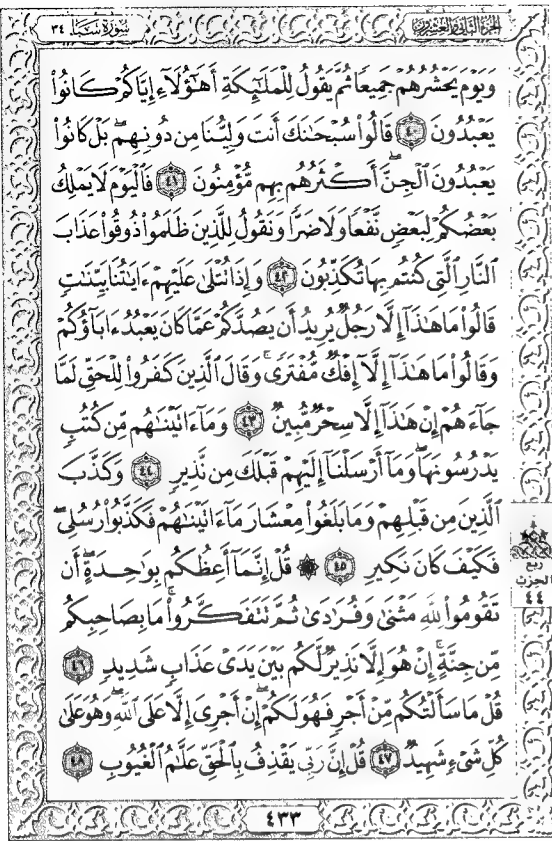 الجزء الثاني والعشرون سورة سبإ ٣٤
وَيَوْمَ يَحْشُرُهُمْ جَمِيعًا ثُمَّ يَقُولُ لِلْمَلَٰٓئِكَةِ أَهَٰٓؤُلَآءِ إِيَّاكُمْ كَانُوا۟
يَعْبُدُونَ ٤٠ قَالُوا۟ سُبْحَٰنَكَ أَنتَ وَلِيُّنَا مِن دُونِهِم ۖ بَلْ كَانُوا۟
يَعْبُدُونَ ٱلْجِنَّ ۖ أَكْثَرُهُم بِهِم مُّؤْمِنُونَ ٤١ فَٱلْيَوْمَ لَا يَمْلِكُ
بَعْضُكُمْ لِبَعْضٍ نَّفْعًا وَلَا ضَرًّا وَنَقُولُ لِلَّذِينَ ظَلَمُوا۟ ذُوقُوا۟ عَذَابَ
ٱلنَّارِ ٱلَّتِى كُنتُم بِهَا تُكَذِّبُونَ ٤٢ وَإِذَا تُتْلَىٰ عَلَيْهِمْ ءَايَٰتُنَا بَيِّنَٰتٍ
قَالُوا۟ مَا هَٰذَآ إِلَّا رَجُلٌ يُرِيدُ أَن يَصُدَّكُمْ عَمَّا كَانَ يَعْبُدُ ءَابَآؤُكُمْ
وَقَالُوا۟ مَا هَٰذَآ إِلَّآ إِفْكٌ مُّفْتَرًى ۚ وَقَالَ ٱلَّذِينَ كَفَرُوا۟ لِلْحَقِّ لَمَّا
جَآءَهُمْ إِنْ هَٰذَآ إِلَّا سِحْرٌ مُّبِينٌ ٤٣ وَمَآ ءَاتَيْنَٰهُم مِّن كُتُبٍ
يَدْرُسُونَهَا ۖ وَمَآ أَرْسَلْنَآ إِلَيْهِمْ قَبْلَكَ مِن نَّذِيرٍ ٤٤ وَكَذَّبَ
ٱلَّذِينَ مِن قَبْلِهِمْ وَمَا بَلَغُوا۟ مِعْشَارَ مَآ ءَاتَيْنَٰهُمْ فَكَذَّبُوا۟ رُسُلِى ۖ
فَكَيْفَ كَانَ نَكِيرِ ٤٥ ۞ قُلْ إِنَّمَآ أَعِظُكُم بِوَٰحِدَةٍ ۖ أَن
تَقُومُوا۟ لِلَّهِ مَثْنَىٰ وَفُرَٰدَىٰ ثُمَّ تَتَفَكَّرُوا۟ ۚ مَا بِصَاحِبِكُم
مِّن جِنَّةٍ ۚ إِنْ هُوَ إِلَّا نَذِيرٌ لَّكُم بَيْنَ يَدَىْ عَذَابٍ شَدِيدٍ ٤٦
قُلْ مَا سَأَلْتُكُم مِّنْ أَجْرٍ فَهُوَ لَكُمْ ۖ إِنْ أَجْرِىَ إِلَّا عَلَى ٱللَّهِ ۖ وَهُوَ عَلَىٰ
كُلِّ شَىْءٍ شَهِيدٌ ٤٧ قُلْ إِنَّ رَبِّى يَقْذِفُ بِٱلْحَقِّ عَلَّٰمُ ٱلْغُيُوبِ ٤٨
ربع
الحزب
٤٤
٤٣٣